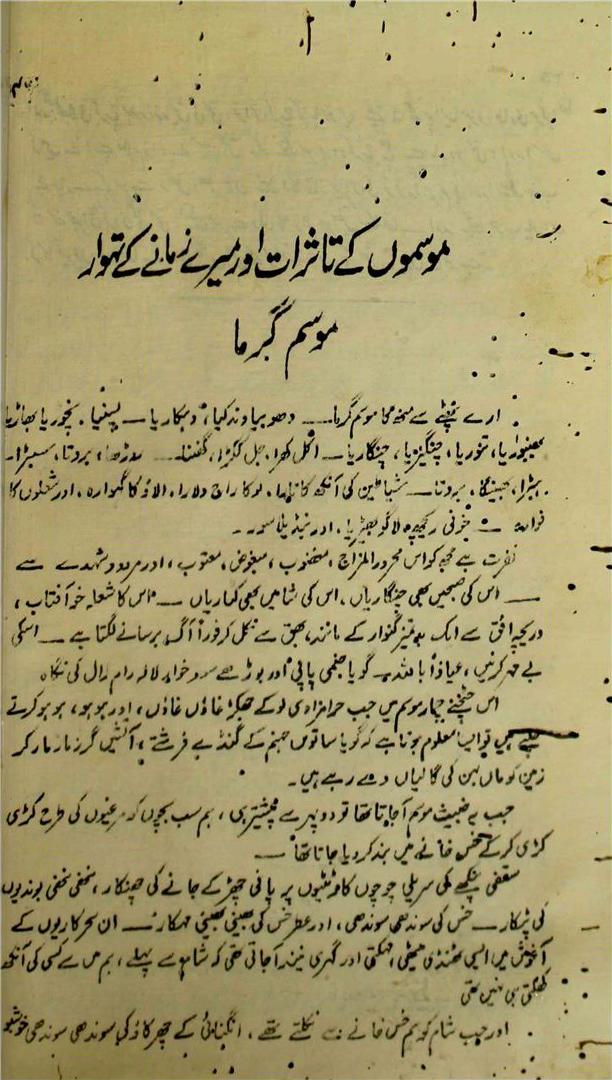 موسموں کے تاثرات اور میرے زمانے کے تہوار
موسم گرما
ارے نچٹے سے منھ کا موسم گرما — دھوبیا وند کیا، دہکاریا —
تنوریا، چنگیزیا، چنگاریا —
شیاطین کی آنکھ کا تارا، لوکا راج دلارا، الاؤ کا گہوارہ، اور شعلوں کا
فوارہ — خونی ریچھ لاگو بھیڑیا، اور
نفرت ہے مجھ کو اس محرور المزاج، مغضوب، مبغوض، معتوب، اور مردود شہدے سے
— اس کی صبحیں بھی چنگاریاں، اس کی شامیں بھی کٹاریاں — اس کا شعلہ خو آفتاب،
دریچۂ افق سے ایک بدتمیز گنوار کے مانند، بھق سے نکل کر فوراً آگ برسانے لگتا ہے — اسکی
بے مہر کرنیں، عیاذاً باللہ — گویا جنمی پاپی اور بوڑھے سود خوار لالہ رام لال کی نگاہ
اس چیختے چہار موسم میں جب حرامزادی لو کے جھکڑ غاؤں غاؤں، اور ہو ہو، ہو ہو کرتے
چلتے ہیں تو ایسا معلوم ہوتا ہے کہ گویا ساتوں جہنم کے گنڈے فرشتے، آتشیں گرز مار مار کر
زمین کو ماں بہن کی گالیاں دے رہے ہیں۔
جب یہ خبیث موسم آجاتا تھا تو دوپہر سے پیشتر ہی، ہم سب بچوں کو مرغیوں کی طرح کڑی
کڑی کر کے خس خانے میں بند کر دیا جاتا تھا —
سقفی پنکھے کی سریلی چوچوں کا ٹٹیوں پر پانی چھڑکے جانے کی چھنکار، ننھی ننھی بوندیوں
کی پڑکار — خس کی سوندھی سوندھی، اور عطر خس کی بھینی بھینی مہکار — ان سحر کاریوں کے
آغوش میں ایسی ٹھنڈی میٹھی، مہکتی اور گہری نیند آجاتی تھی کہ شام سے پہلے، ہم میں سے کسی کی آنکھ
کھلتی ہی نہیں تھی
اور جب شام کو ہم خس خانے سے نکلتے تھے، انگنائی کے چھڑکاؤ کی سوندھی سوندھی خوشبو